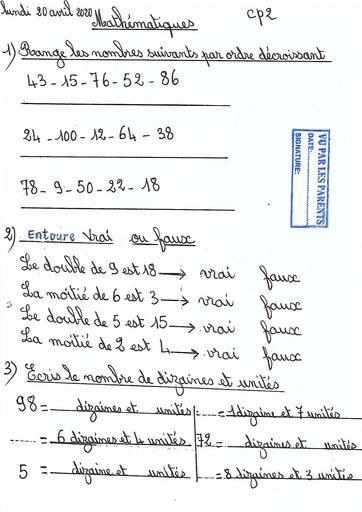 Lundi 20 avril 2020
Mathématiques
CP2
1) Range les nombres suivants par ordre décroissant
43 - 15 - 76 - 52 - 86
24 - 100 - 12 - 64 - 38
78 - 9 - 50 - 22 - 18
VU PAR LES PARENTS
DATE:
SIGNATURE:
2) Entoure vrai ou faux
Le double de 9 est 18 → vrai faux
La moitié de 6 est 3 → vrai faux
Le double de 5 est 15 → vrai faux
La moitié de 2 est 4 → vrai faux
3) Ecris le nombre de dizaines et unités
98 = dizaines et unités = 1 dizaine et 7 unités
= 6 dizaines et 4 unités 72 = dizaines et unités
5 = dizaine et unités = 8 dizaines et 3 unités